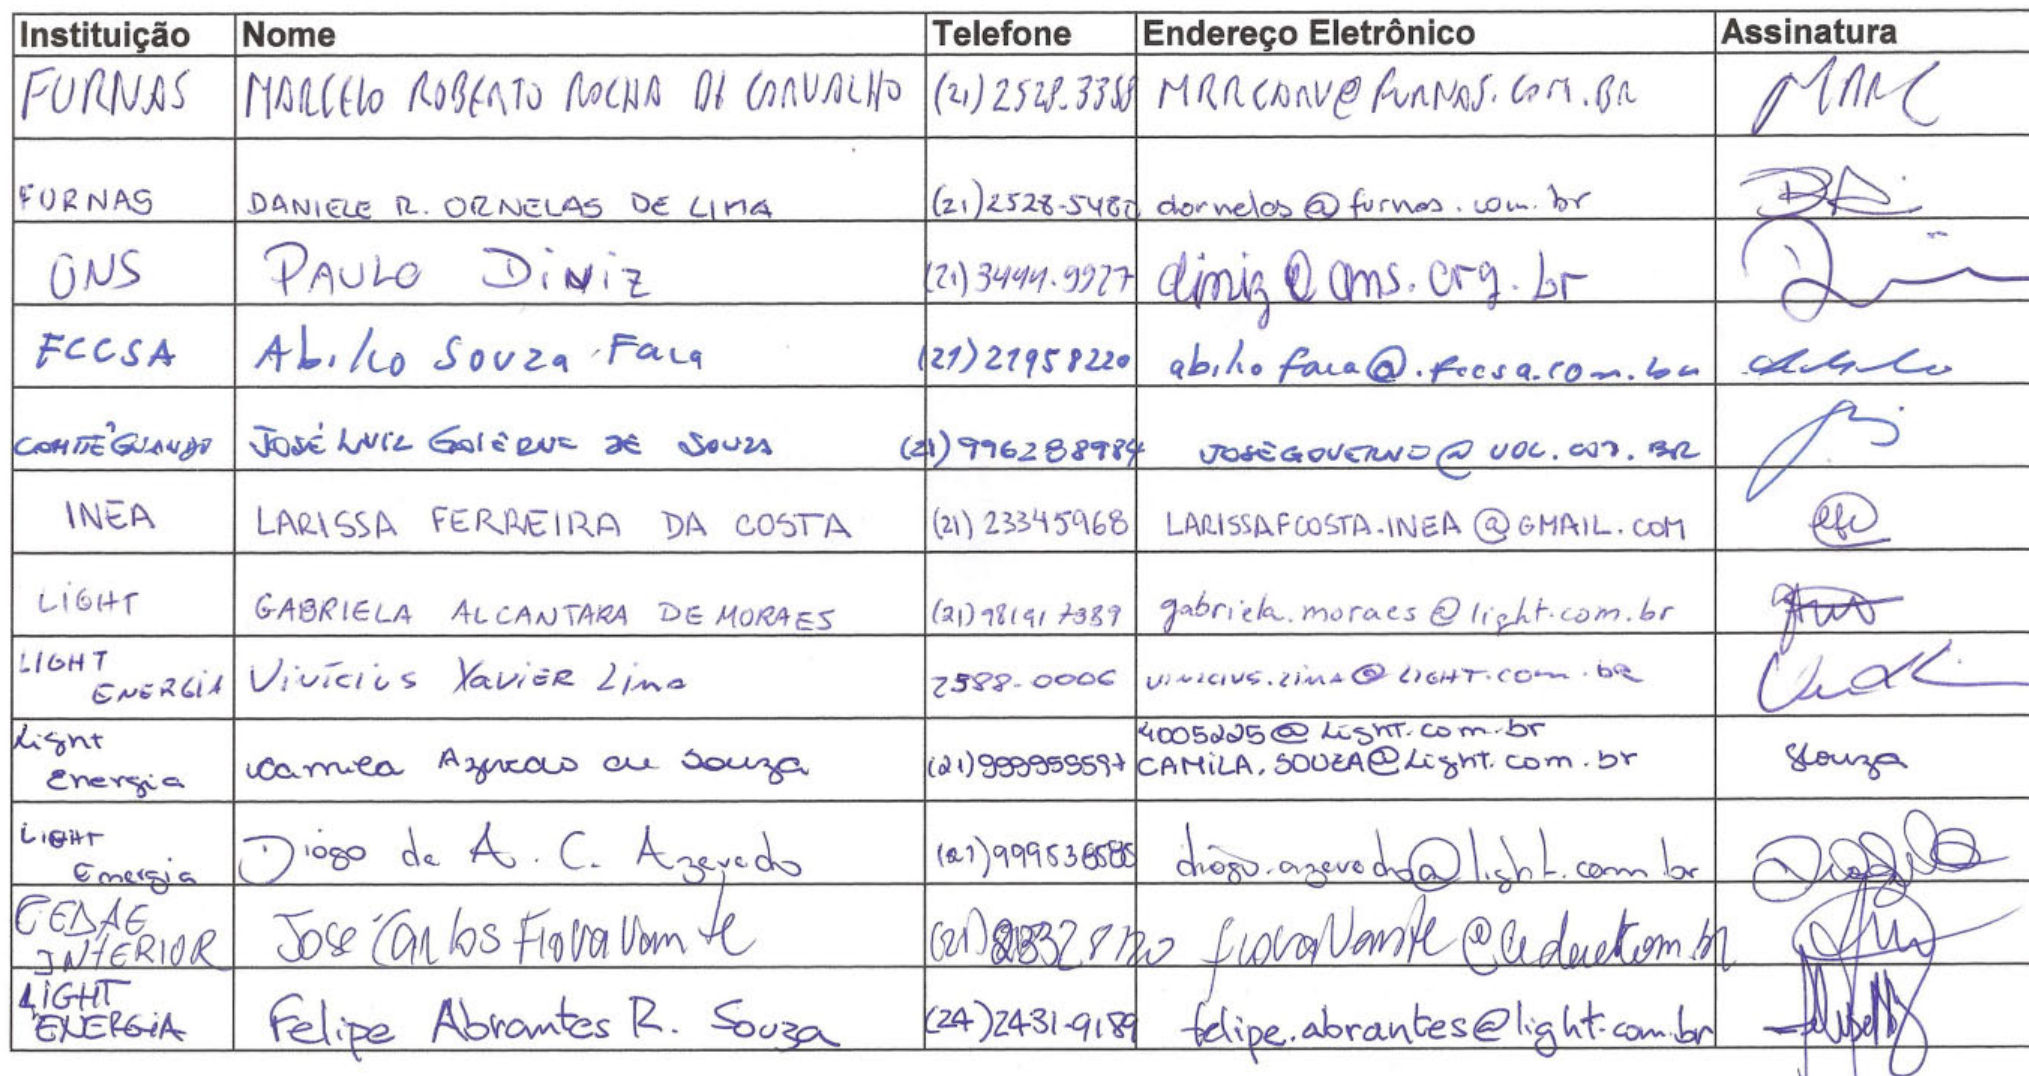 Instituição Nome Telefone Endereço Eletrônico Assinatura
FURNAS MARCELO ROBERTO ROCHA DE CARVALHO (21) 2528.3358 MRRCARV@FURNAS.COM.BR
FURNAS DANIELE R. ORNELAS DE LIMA (21) 2528-5480 dornelas@furnas.com.br
ONS PAULO DINIZ (21) 3444.9927 diniz@ons.org.br
FCCSA Abilio Souza Faca (21) 21958220 abilio faca@.fccsa.com.br
COMITÊ GUANDU JOSÉ LUIZ DE SOUZA (21) 996288984 JOSEGOVERNO@UOL.COM.BR
INEA LARISSA FERREIRA DA COSTA (21) 23345968 LARISSAFCOSTA.INEA@GMAIL.COM
LIGHT GABRIELA ALCANTARA DE MORAES (21) 981917389 gabriela.moraes@light.com.br
LIGHT
ENERGIA Vinícius Xavier Lima 2588-0006 VINICIUS.LIMA@LIGHT.com.br
Light 4005225@Light.com.br
Energia Camila Azevedo de Souza (21) CAMILA.SOUZA@Light.com.br Souza
LIGHT
Energia Diogo de A. C. Azevedo (21) diogo.azevedo@light.com.br
CEDAE
INTERIOR José Carlos Fioravante (21)
LIGHT
ENERGIA Felipe Abrantes R. Souza (24) 2431-9189 felipe.abrantes@light.com.br